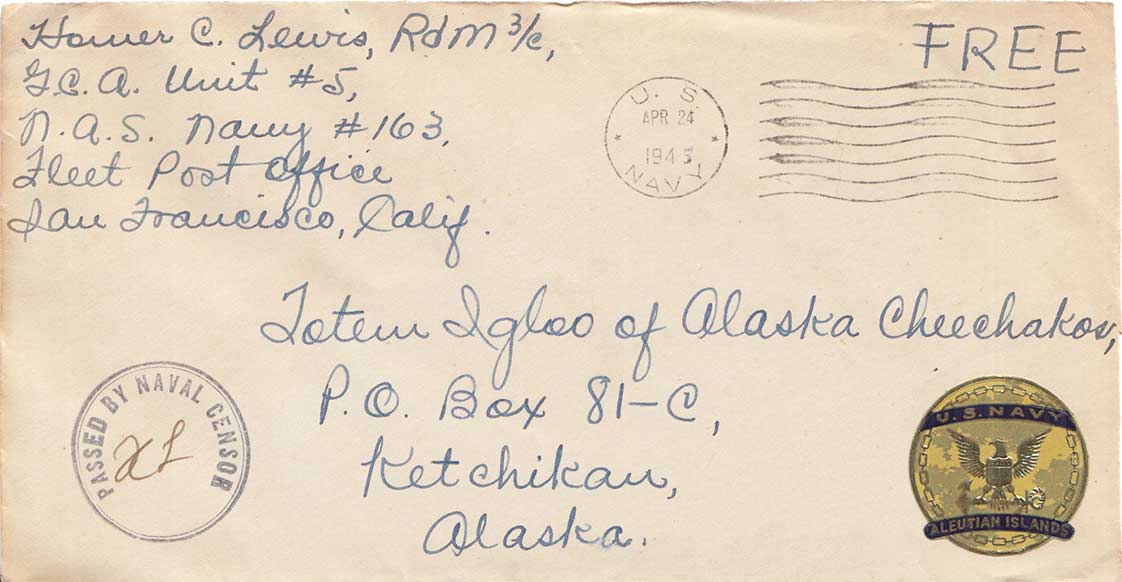 Homer C. Lewis, RdM 3/c,
G.C.A. Unit #5,
N.A.S. Navy #163,
Fleet Post Office
San Francisco, Calif.
FREE
U. S.
APR 24
1945
NAVY
Totem Igloo of Alaska Cheechakos,
P.O. Box 81-C,
Ketchikan,
Alaska.
PASSED BY NAVAL CENSOR
U.S. NAVY
ALEUTIAN ISLANDS